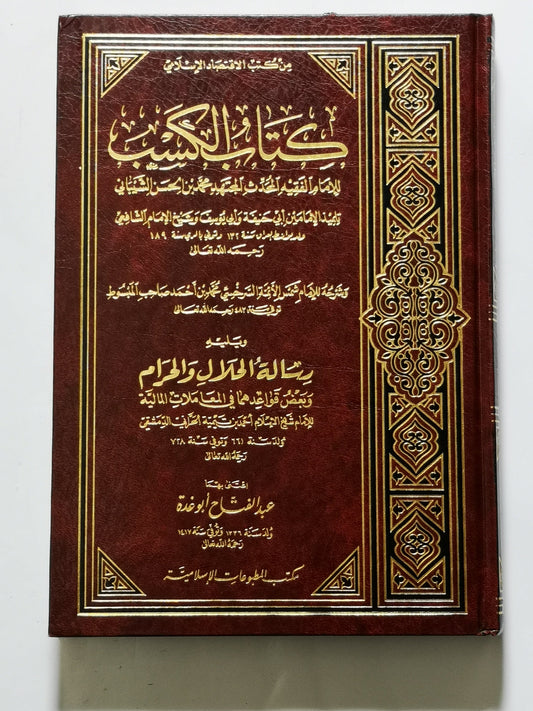 من كتب الاقتصاد الإسلامي
كتاب الكسب
للإمام الفقيه المحدث المجتهد محمد بن الحسن الشيباني
تلميذ الإمامين أبي حنيفة وأبي يوسف وشيخ الإمام الشافعي
ولد بواسط العراق سنة ١٣٢ وتوفي بالري سنة ١٨٩
رحمه الله تعالى
وشرحه للإمام شمس الأئمة السرخسي محمد بن أحمد صاحب المبسوط
توفي سنة ٤٨٣ رحمه الله تعالى
ويليه
رسالة الحلال والحرام
وبعض قواعدهما في المعاملات المالية
للإمام شيخ الإسلام أحمد بن تيمية الحراني الدمشقي
ولد سنة ٦٦١ وتوفي سنة ٧٢٨
رحمه الله تعالى
اعتنى بهما
عبد الفتاح أبو غدة
ولد سنة ١٣٣٦ وتوفي سنة ١٤١٧
رحمه الله تعالى
مكتب المطبوعات الإسلامية